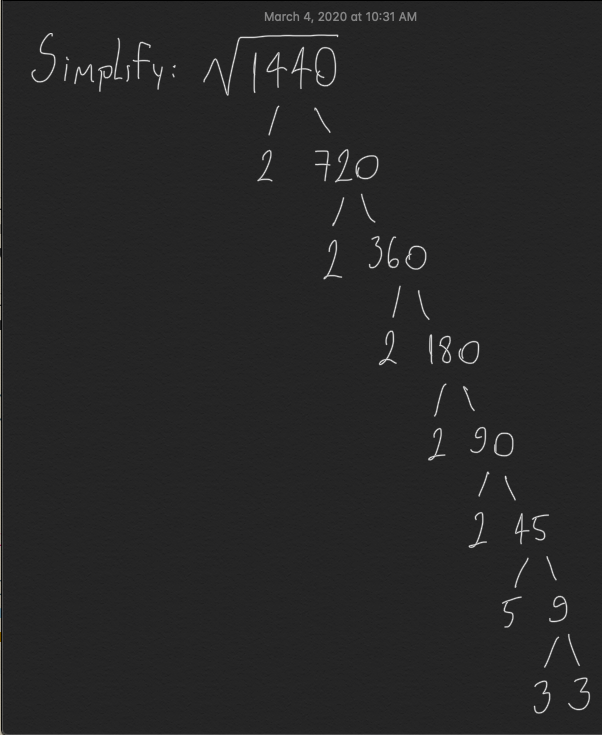 March 4, 2020 at 10:31 AM
Simplify: √1440
2 720
2 360
2 180
2 90
2 45
5 9
3 3